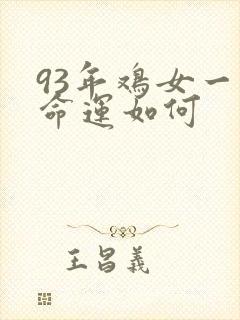 93年鸡女一
命运如何
王昌义